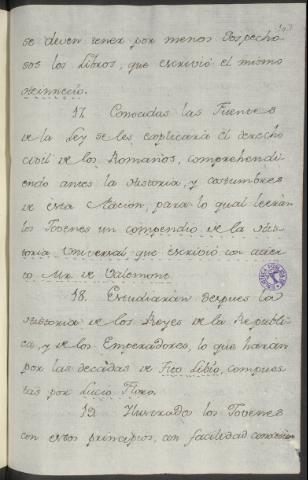 se deven tener por menos sospecho-
sos los Libros, que escrivió el mismo
Heinnecio.
17. Conocidas las Fuentes
de la Ley se les explicaría el derecho
civil de los Romanos, comprehendi-
endo antes la Historia, y costumbres
de esta Nacion, para lo qual leerán
los Jovenes un compendio de la His-
toria Universal que escrivió con acier-
to Mr. de Valemont.
18. Estudiarán despues la
Historia de los Reyes de la Republi-
ca, y de los Emperadores, lo que harán
por las decadas de Tito Libio, compues-
tas por Lucio Floro.
19. Ilustrados los Jovenes
con estos principios, con facilidad